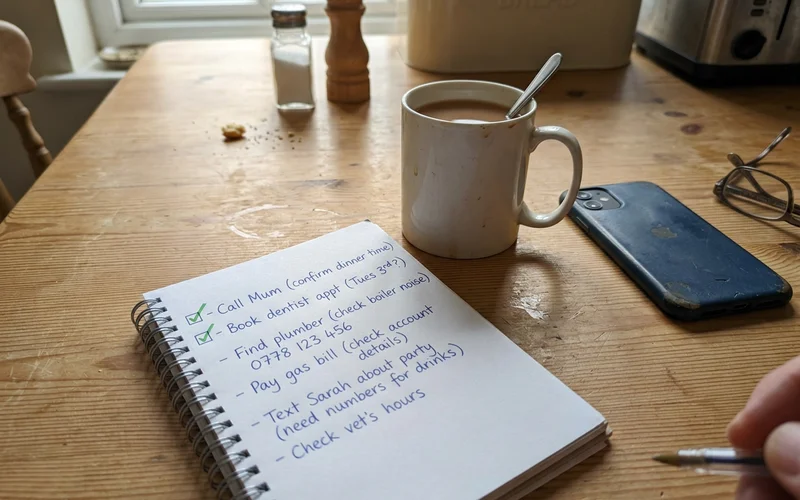 BREAD
☑ - Call Mum (confirm dinner time)
☑ - Book dentist appt (Tues 3rd?)
- Find plumber (check boiler noise)
0778 123 456
- Pay gas bill (check account
details)
- Text Sarah about party
(need numbers for drinks)
- Check vet's hours